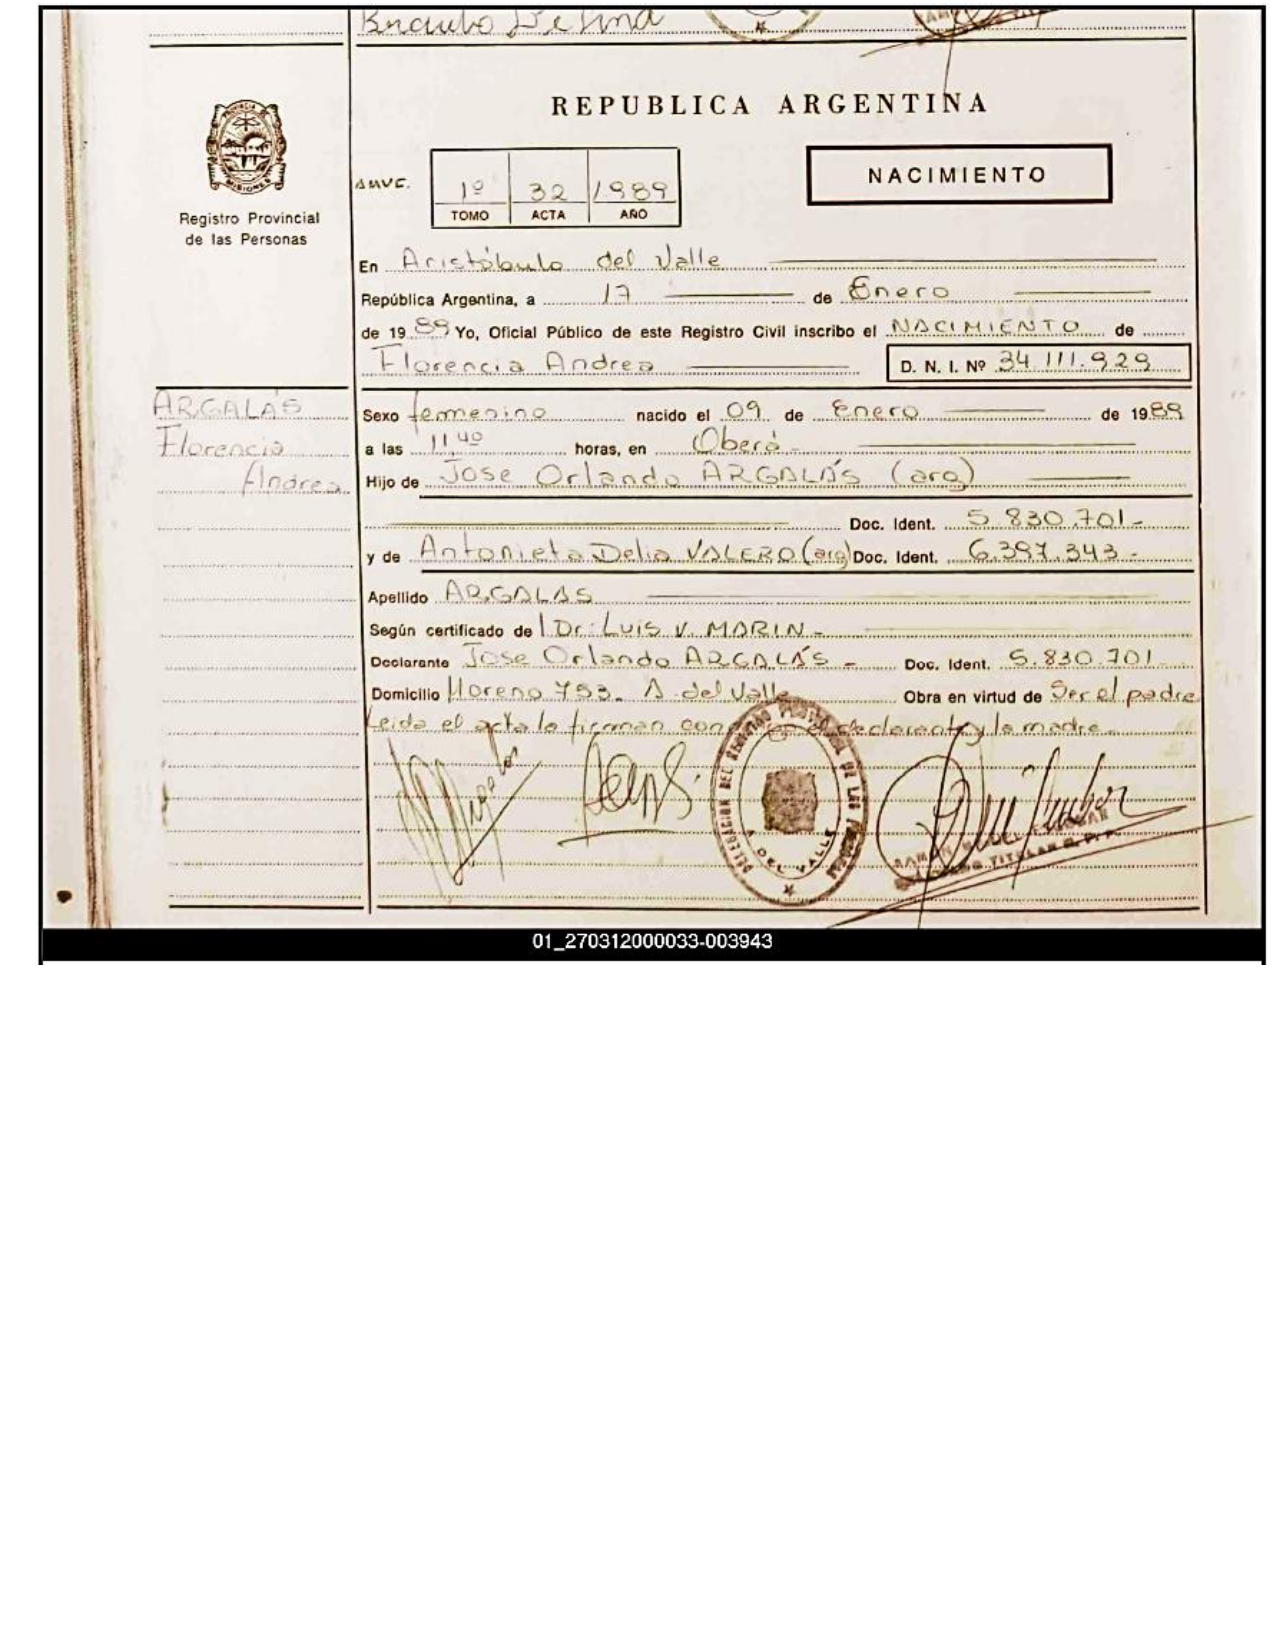 REPUBLICA ARGENTINA
PROVINCIA DE
MISIONES
Registro Provincial
de las Personas
1º 32 1989
TOMO ACTA AÑO
NACIMIENTO
En Aristóbulo del Valle
República Argentina, a 17 de Enero
de 1989 Yo, Oficial Público de este Registro Civil inscribo el NACIMIENTO de
Florencia Andrea D. N. I. Nº 34.111.929
ARGALÁS
Florencia
Andrea
Sexo femenino nacido el 09 de Enero de 1989
a las 11 40 horas, en Oberá -
Hijo de Jose Orlando ARGALÁS (arg)
Doc. Ident. 5.830.701-
y de Antonieta Delia VALERO (arg) Doc. Ident. 6.397.343-
Apellido ARGALAS
Según certificado de Dr. Luis V. MARIN-
Declarante Jose Orlando ARGALÁS - Doc. Ident. 5.830.701-
Domicilio Moreno 753- A. del Valle Obra en virtud de Ser el padre
Leida el acta la firman el declarante y la madre-
DELEGACION DEL REGISTRO DE LAS
A. DEL VALLE
TITULAR R. P. P.
01_270312000033-003943